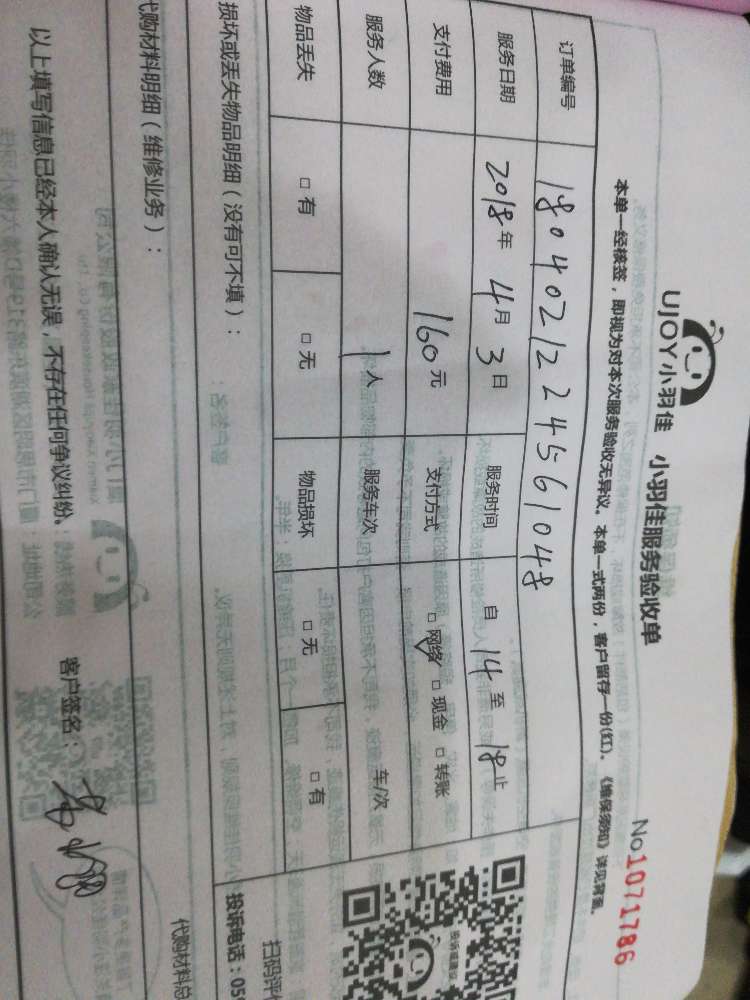 UJOY小羽佳 小羽佳服务验收单
No 1071786
本单一经核签，即视为对本次服务验收无异议。本单一式两份，客户留存一份(红)。《维保须知》详见背面。
订单编号 1804021224561048
服务日期 2018年4月3日 服务时间 自14至18止
支付费用 160元 支付方式 □网络 □现金 □转账
服务人数 1人 服务车次 车/次
物品丢失 □有 □无 物品损坏 □无 □有
损坏或丢失物品明细（没有可不填）：
投诉电话：059
扫码评价
代购材料明细（维修业务）：
代购材料总
以上填写信息已经本人确认无误，不存在任何争议纠纷。 客户签名：